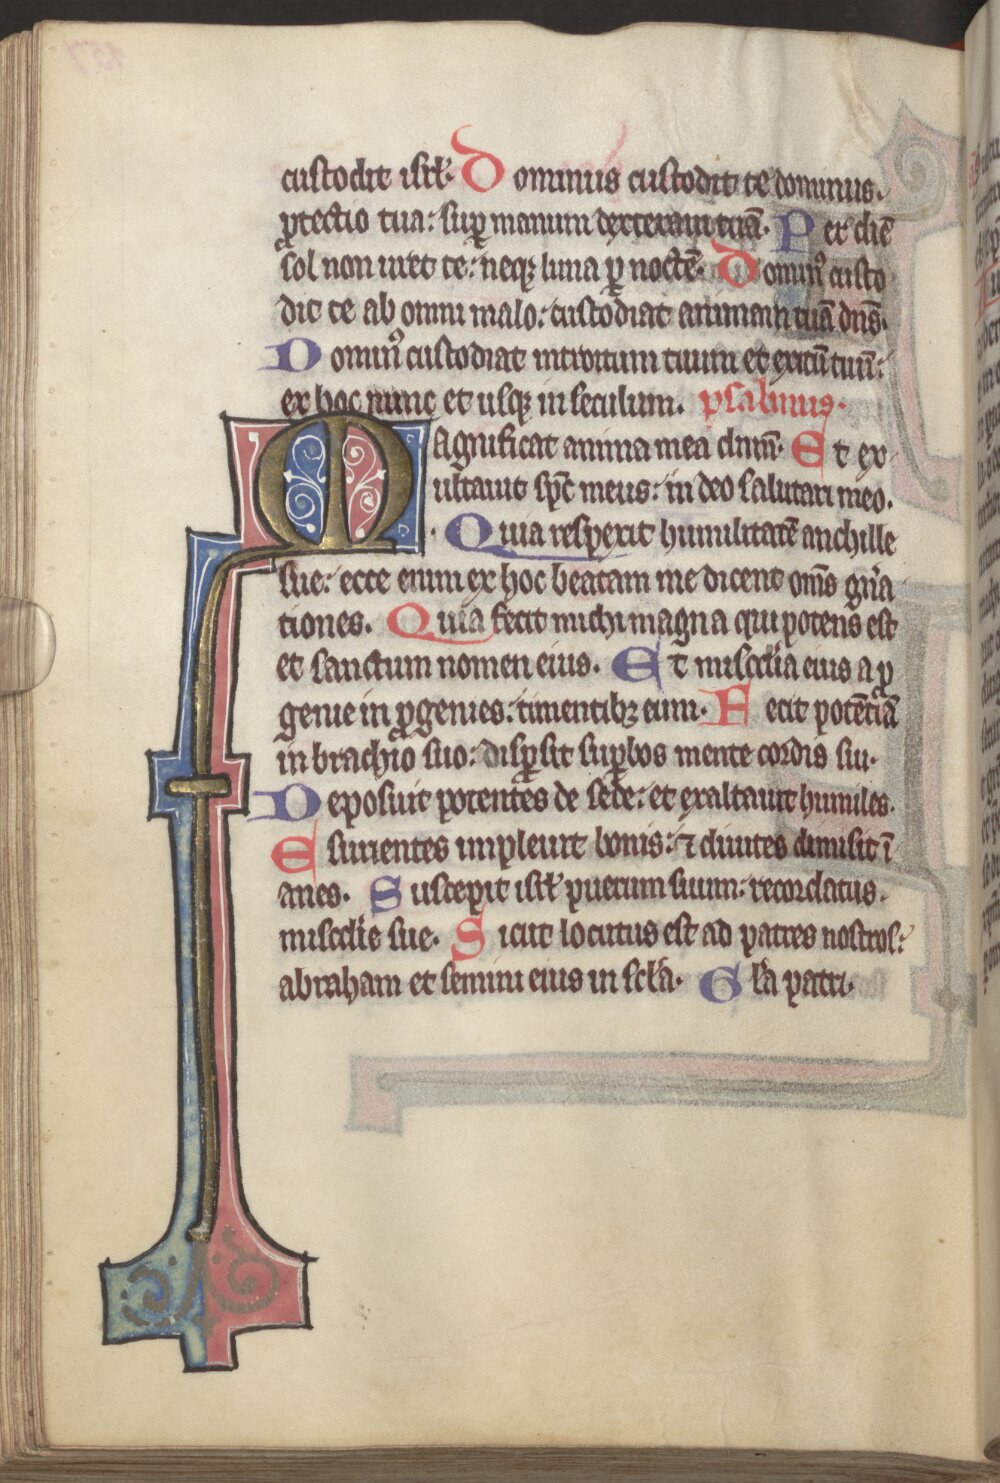 custodit isrl'. Dominus custodit te dominus.
ꝓtectio tua: suꝑ manum dexteram tuā. Per diē
sol non uret te: neqꝫ luna ꝑ noctē. Domin᷒ custo
dit te ab omni malo: custodiat animam tuā dn̄s.
Domin᷒ custodiat introitum tuum et exitū tuū:
ex hoc nunc et usqꝫ in seculum. psalmus.
Magnificat anima mea dnm̄. Et ex
ultauit sp̄c meus: in deo salutari meo.
Quia respexit humilitatē anchille
sue: ecce enim ex hoc beatam me dicent om̄s gn̄a
tiones. Quia fecit michi magna qui potens est
et sanctum nomen eius. Et misc̄dia eius a ꝓ
genie in ꝓgenies: timentibꝫ eum. Fecit potētiā
in brachio suo: disꝑsit suꝑbos mente cordis sui.
Deposuit potentes de sede: et exaltauit humiles.
Esurientes impleuit bonis: ⁊ diuites dimisit ī
anes. Suscepit isrl' puerum suum: recordatus.
misc̄die sue. Sicut locutus est ad patres nostros:
abraham et semini eius in sc̄la. Gl̄a patri.